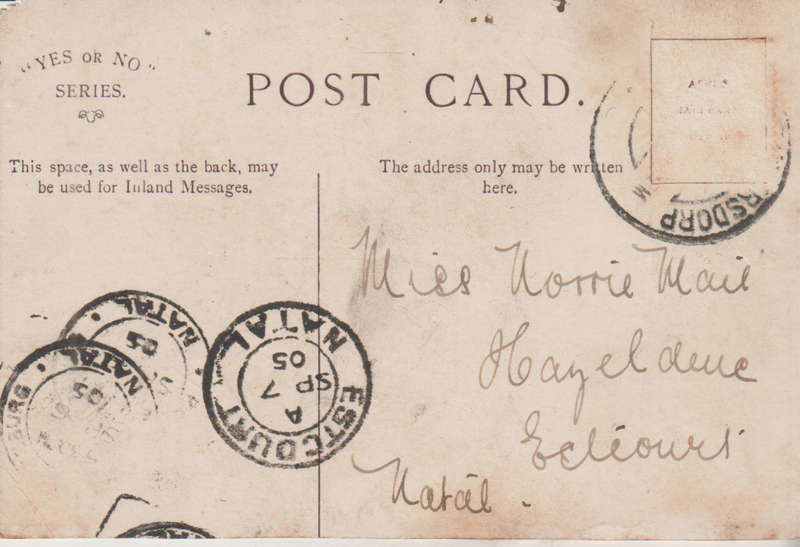 "YES OR NO"
SERIES.
POST CARD.
This space, as well as the back, may
be used for Inland Messages.
The address only may be written
here.
RSDORP
Miss Norrie Mail
Hazeldene
Estcourt
Natal.
NATAL
05
NATAL
05
BURG
ESTCOURT NATAL
A
SP 7
05